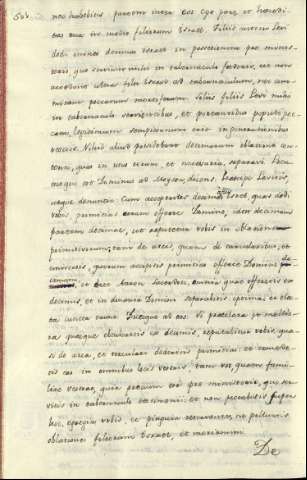 non habebitis partem inter eos ego pars et heredi-
tas tua in medio filiorum Israel. Filiis autem Levi
dedi omnes decimas Israel in possessionem pro minis-
terio, quo serviunt mihi in tabernaculo foederis, ut non
accedant ultra filii Israel ad tabernaculum, nec com-
mittant peccatum mortiferum. Solis filiis Levi mihi
in tabernaculo servientibus, et portantibus populi pec-
cata, legitimum sempiternum erit in generationibus
vestris. Nihil aliud possidebunt decimarum oblatione con-
tenti, quas in usus eorum, et necessaria, separavi. Locu-
tusque est Dominus ad Moysen, dicens. Praecipe Levitis,
atque denuncia. Cum acceperitis decimas Israel, quas dedi
vobis, primitias earum offerte Domino, idest decimam
partem decimae, ut reputetur vobis in oblationem
primitivorum, tam de areis, quam de torcularibus, et
universis, quorum accipitis primitias offerte Domino
et date Aaron Sacerdoti. omnia quae offeretis ex
decimis, et in donaria Domini separabitis optima, et elec-
ta cuncta erunt. Dicesque ad eos. Si praeclara, et melio-
ra quaeque obtuleritis ex decimis, reputabitur vobis qua-
si de area, et torculari dederitis primitias: et comede-
tis eas in omnibus locis vestris, tam vos, quam fami-
liae vestrae, quia pretium est pro ministerio, quo ser-
vitis in tabernaculo testimonii: et non peccabitis super
hoc, egregia vobis, et pinguia reservantes, ne polluatis
oblationes filiorum Israel, et moriamini
De